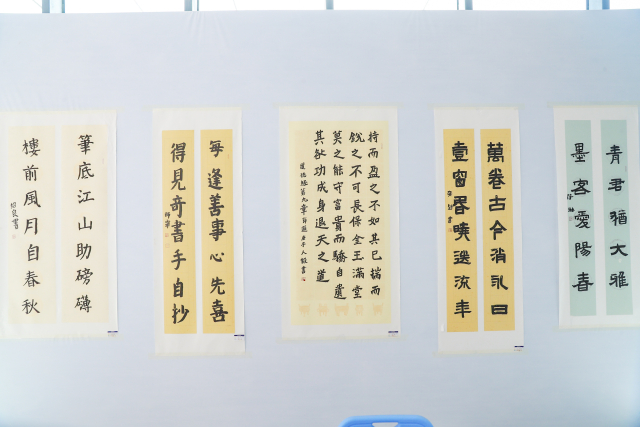 青君猶大雅
墨客愛陽春
萬卷古今消永日
壹窗昏曉送流年
持而盈之不如其已揣而
銳之不可長保金玉滿堂
莫之能守富貴而驕自遺
其咎功成身退天之道
道德經第九章
每逢善事心先喜
得見奇書手自抄
筆底江山助磅礴
樓前風月自春秋